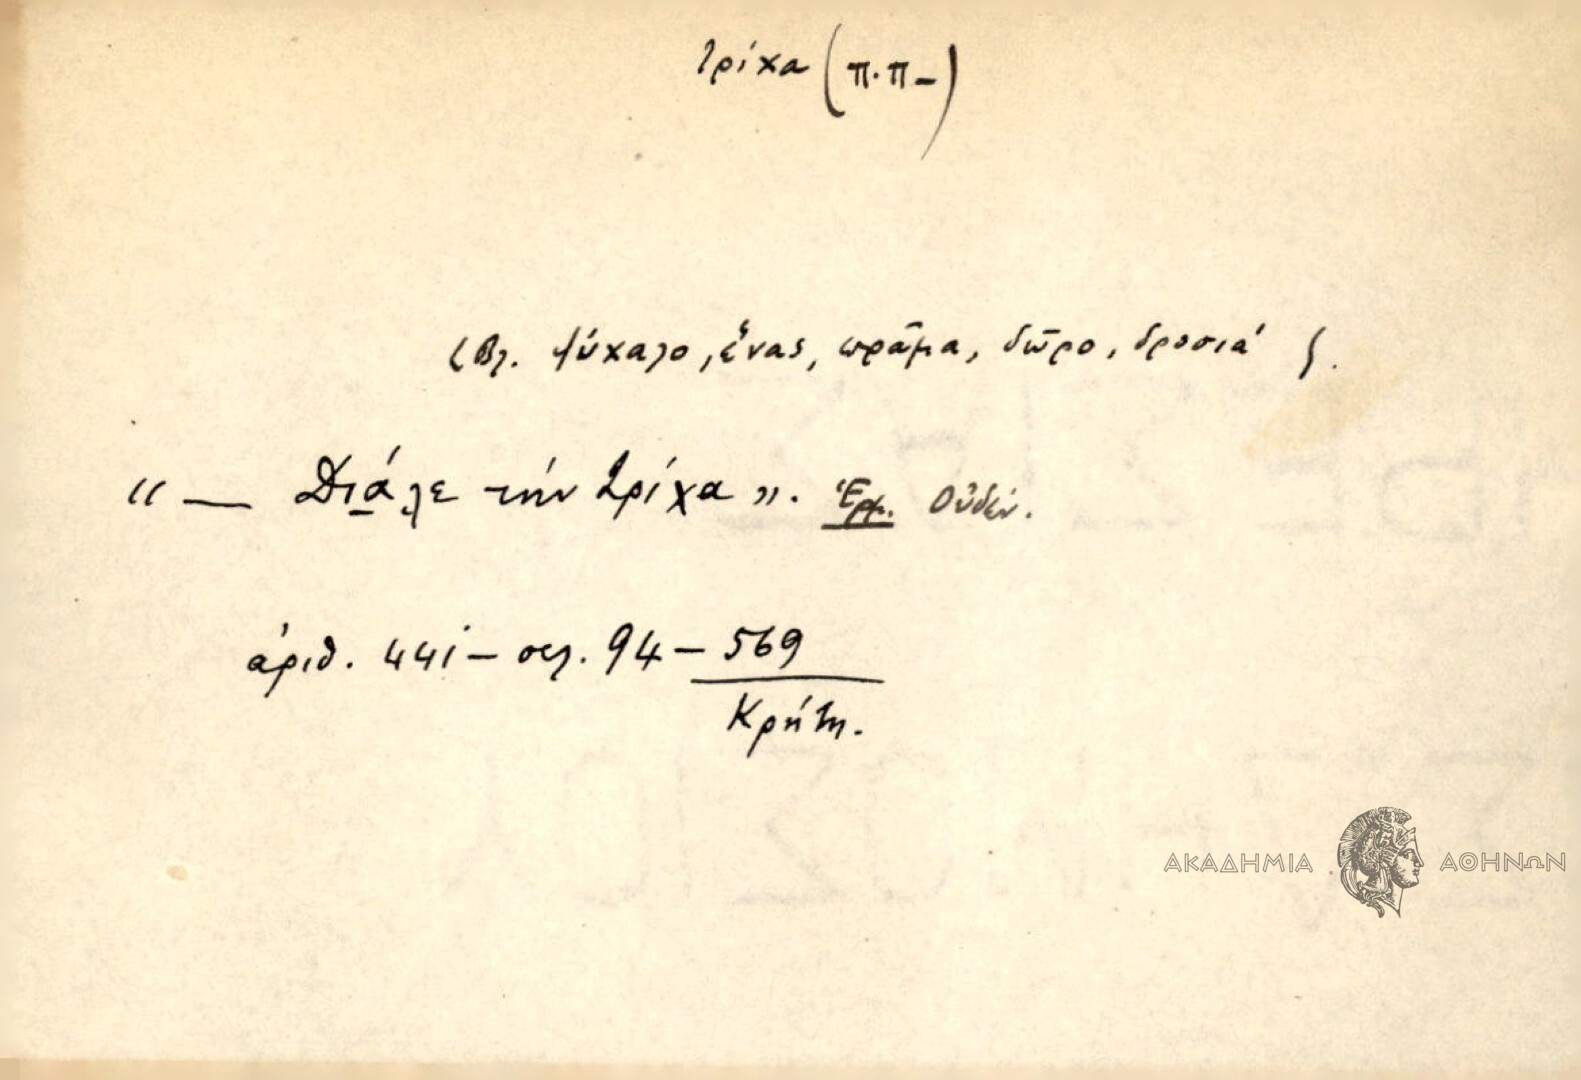 τρίχα (π.π-)
(Βλ. ψύχαλο, ἕνας, πρᾶμα, δῶρο, δροσιά).
“ — Διάλε τήν τρίχα ”. Ἑρμ. Οὐδέν.
ἀριθ. 441 – σελ. 94 – 569
Κρήτη.
ΑΚΑΔΗΜΙΑ ΑΘΗΝΩΝ